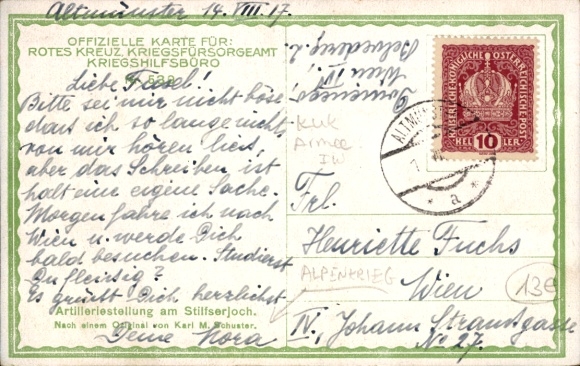 Altmünster 14. VIII. 17.
OFFIZIELLE KARTE FÜR:
ROTES KREUZ, KRIEGSFÜRSORGEAMT
KRIEGSHILFSBÜRO
Liebe
Bitte sei mir nicht böse
dass ich so lange nichts
von mir hören liess,
aber das Schreiben ist
halt eine eigene Sache.
Morgen fahre ich nach
Wien u. werde Dich
bald besuchen. Studierst
Du fleissig?
Es grüßt Dich herzlichst
Artilleriestellung am Stilfserjoch.
Nach einem Original von Karl M. Schuster.
Deine Nora
Wien IV
KAISERLICHE KÖNIGLICHE ÖSTERREICHISCHE POST
HELLER
10
a
KuK
Armee
Frl.
Henriette Fuchs
ALPENKRIEG
Wien
13€
IV, Johann Straussgasse
No 27.